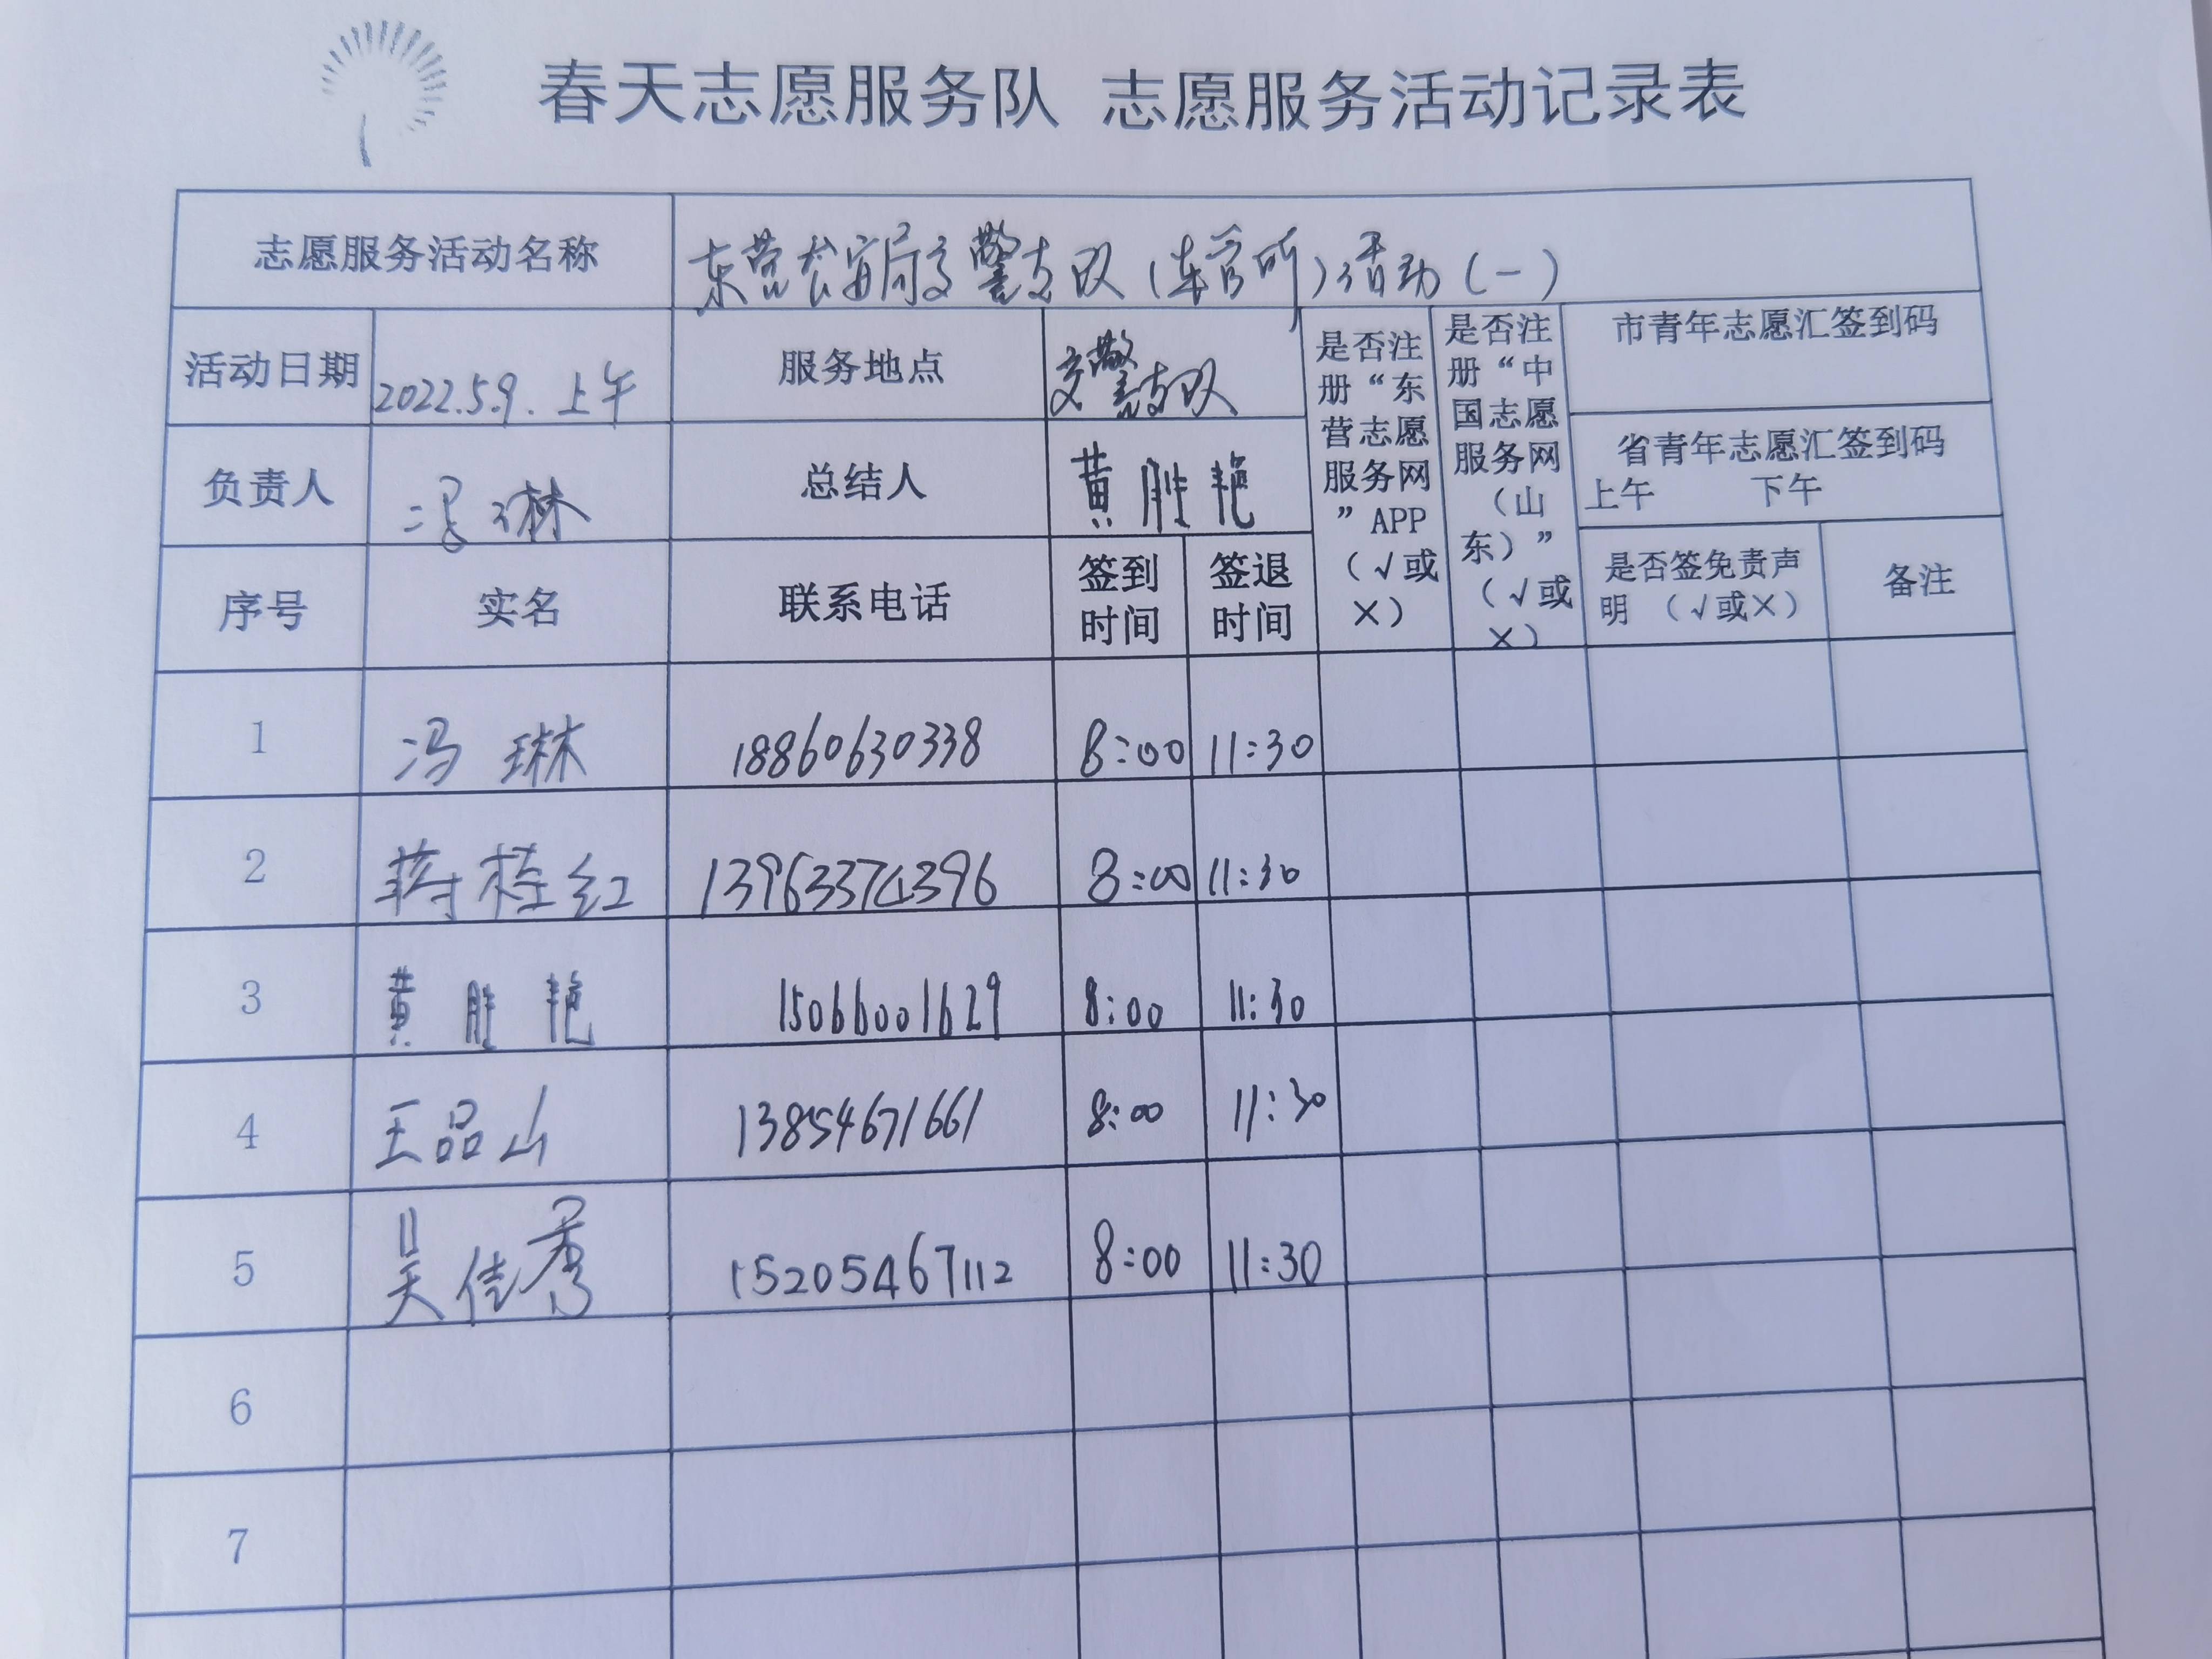 春天志愿服务队 志愿服务活动记录表
志愿服务活动名称 东营公安局交警支队(车管所)活动(一)
活动日期 2022.5.9.上午 服务地点 交警支队
是否注册“东营志愿服务网”APP(√或×)
是否注册“中国志愿服务网(山东)”(√或×)
市青年志愿汇签到码
负责人 冯琳 总结人 黄胜艳
省青年志愿汇签到码
上午 下午
序号 实名 联系电话 签到时间 签退时间 是否签免责声明 (√或×) 备注
1 冯琳 18860630338 8:00 11:30
2 蒋桂红 13963374396 8:00 11:30
3 黄胜艳 15066001629 8:00 11:30
4 王品山 13854671661 8:00 11:30
5 吴佳秀 15205467112 8:00 11:30
6
7